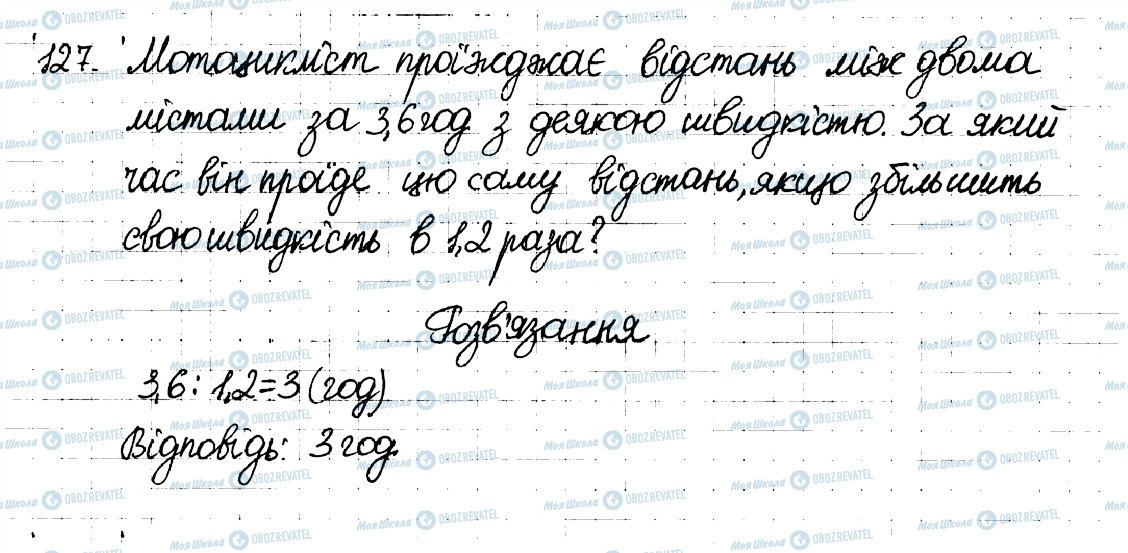 127. Мотоцикліст проїжджає відстань між двома
містами за 3,6 год з деякою швидкістю. За який
час він проїде цю саму відстань, якщо збільшить
свою швидкість в 1,2 раза?
Розв'язання
3,6 : 1,2 = 3 (год)
Відповідь: 3 год.
МояШкола OBOZREVATEL